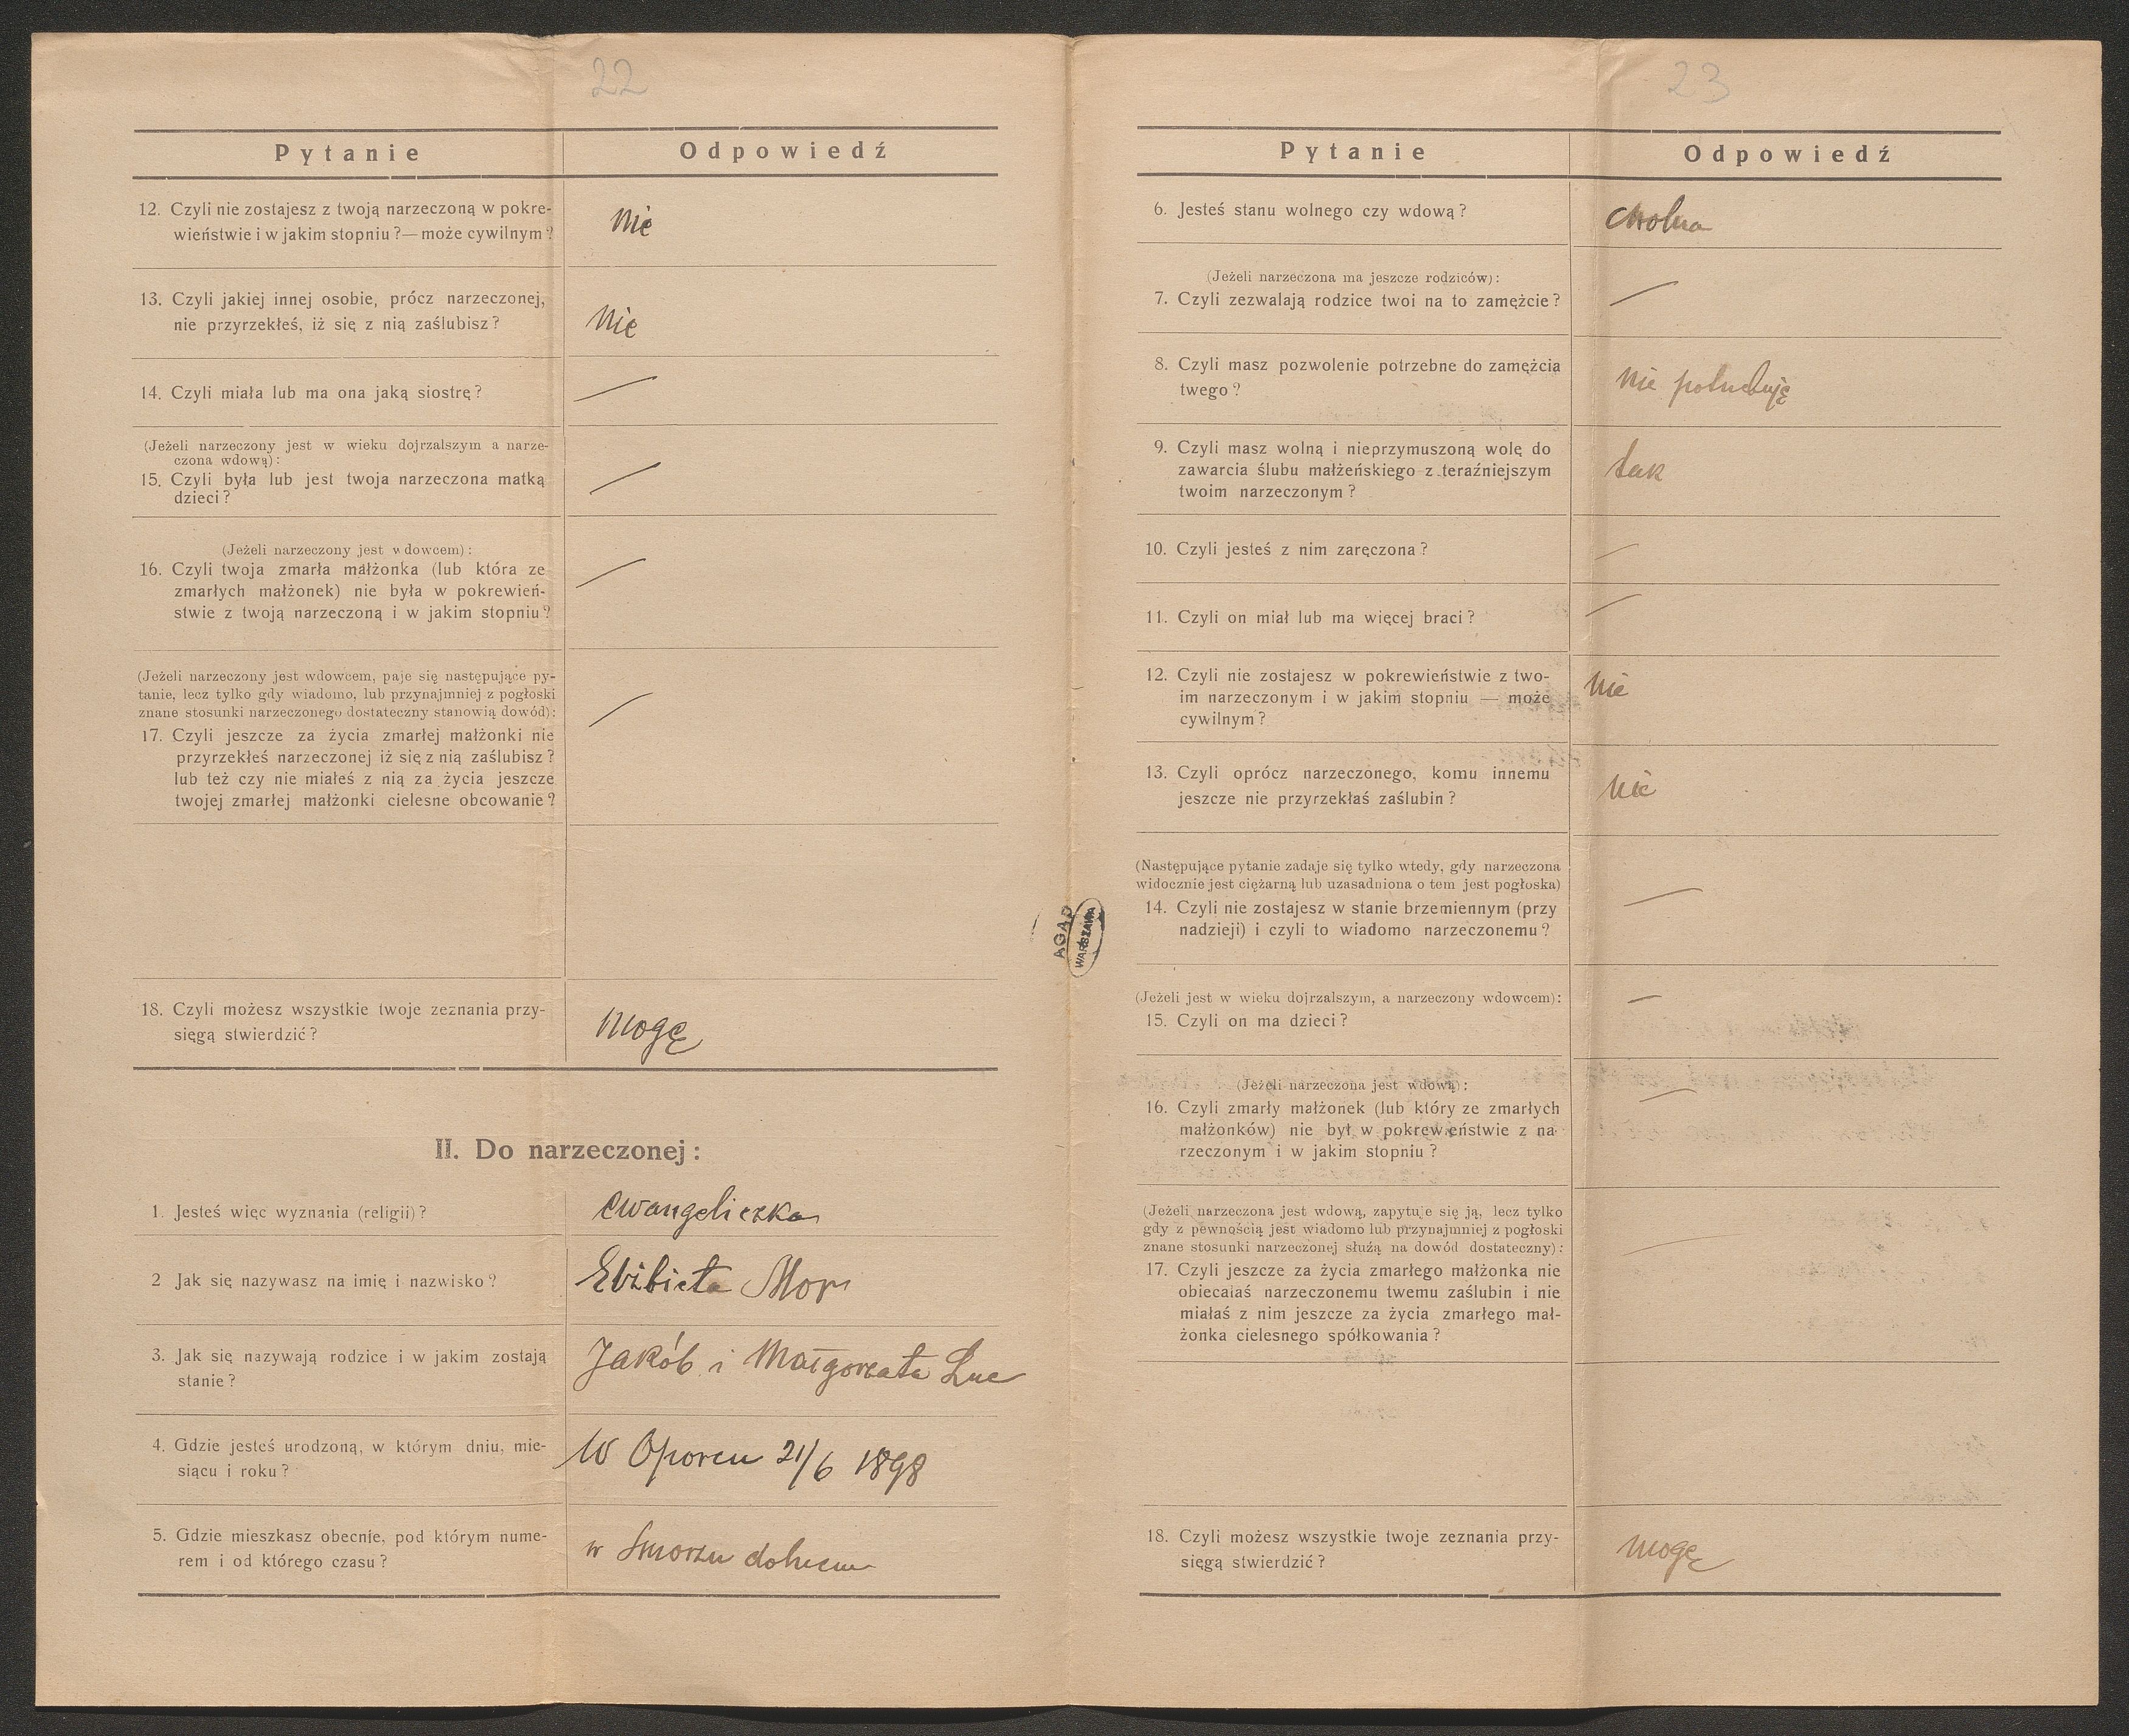 22
Pytanie Odpowiedź
12. Czyli nie zostajesz z twoją narzeczoną w pokre-
wieństwie i w jakim stopniu ?— może cywilnym ?
Nie
13. Czyli jakiej innej osobie, prócz narzeczonej,
nie przyrzekłeś, iż się z nią zaślubisz ?
Nie
14. Czyli miała lub ma ona jaką siostrę ?
—
(Jeżeli narzeczony jest w wieku dojrzalszym a narze-
czona wdową) :
15. Czyli była lub jest twoja narzeczona matką
dzieci ?
—
(Jeżeli narzeczony jest wdowcem) :
16. Czyli twoja zmarła małżonka (lub która ze
zmarłych małżonek) nie była w pokrewień-
stwie z twoją narzeczoną i w jakim stopniu ?
—
(Jeżeli narzeczony jest wdowcem, paje się następujące py-
tanie, lecz tylko gdy wiadomo, lub przynajmniej z pogłoski
znane stosunki narzeczonego dostateczny stanowią dowód) :
17. Czyli jeszcze za życia zmarłej małżonki nie
przyrzekłeś narzeczonej iż się z nią zaślubisz ?
lub też czy nie miałeś z nią za życia jeszcze
twojej zmarłej małżonki cielesne obcowanie ?
—
18. Czyli możesz wszystkie twoje zeznania przy-
sięgą stwierdzić ?
Mogę
II. Do narzeczonej :
1. Jesteś więc wyznania (religii) ?
ewangeliczka
2 Jak się nazywasz na imię i nazwisko ?
Elżbieta Mor
3. Jak się nazywają rodzice i w jakim zostają
stanie ?
Jakób i Małgorzata Luc
4. Gdzie jesteś urodzoną, w którym dniu, mie-
siącu i roku ?
W Oporcu 21/6 1898
5. Gdzie mieszkasz obecnie, pod którym nume-
rem i od którego czasu ?
w Smorzu dolnem
AGAD
WARSZAWA
23
Pytanie Odpowiedź
6. Jesteś stanu wolnego czy wdową ?
wolna
(Jeżeli narzeczona ma jeszcze rodziców) :
7. Czyli zezwalają rodzice twoi na to zamęźcie ?
—
8. Czyli masz pozwolenie potrzebne do zamęźcia
twego ?
nie potrzebuję
9. Czyli masz wolną i nieprzymuszoną wolę do
zawarcia ślubu małżeńskiego z teraźniejszym
twoim narzeczonym ?
tak
10. Czyli jesteś z nim zaręczona ?
—
11. Czyli on miał lub ma więcej braci ?
—
12. Czyli nie zostajesz w pokrewieństwie z two-
im narzeczonym i w jakim stopniu — może
cywilnym ?
nie
13. Czyli oprócz narzeczonego, komu innemu
jeszcze nie przyrzekłaś zaślubin ?
nie
(Następujące pytanie zadaje się tylko wtedy, gdy narzeczona
widocznie jest ciężarną lub uzasadniona o tem jest pogłoska)
14. Czyli nie zostajesz w stanie brzemiennym (przy
nadzieji) i czyli to wiadomo narzeczonemu ?
—
(Jeżeli jest w wieku dojrzalszym, a narzeczony wdowcem) :
15. Czyli on ma dzieci ?
—
(Jeżeli narzeczona jest wdową) :
16. Czyli zmarły małżonek (lub który ze zmarłych
małżonków) nie był w pokrew.eństwie z na-
rzeczonym i w jakim stopniu ?
—
(Jeżeli narzeczona jest wdową, zapytuje się ją, lecz tylko
gdy z pewnością jest wiadomo lub przynajmniej z pogłoski
znane stosunki narzeczonej służą na dowód dostateczny) :
17. Czyli jeszcze za życia zmarłego małżonka nie
obiecałaś narzeczonemu twemu zaślubin i nie
miałaś z nim jeszcze za życia zmarłego mał-
żonka cielesnego spółkowania ?
—
18. Czyli możesz wszystkie twoje zeznania przy-
sięgą stwierdzić ?
mogę